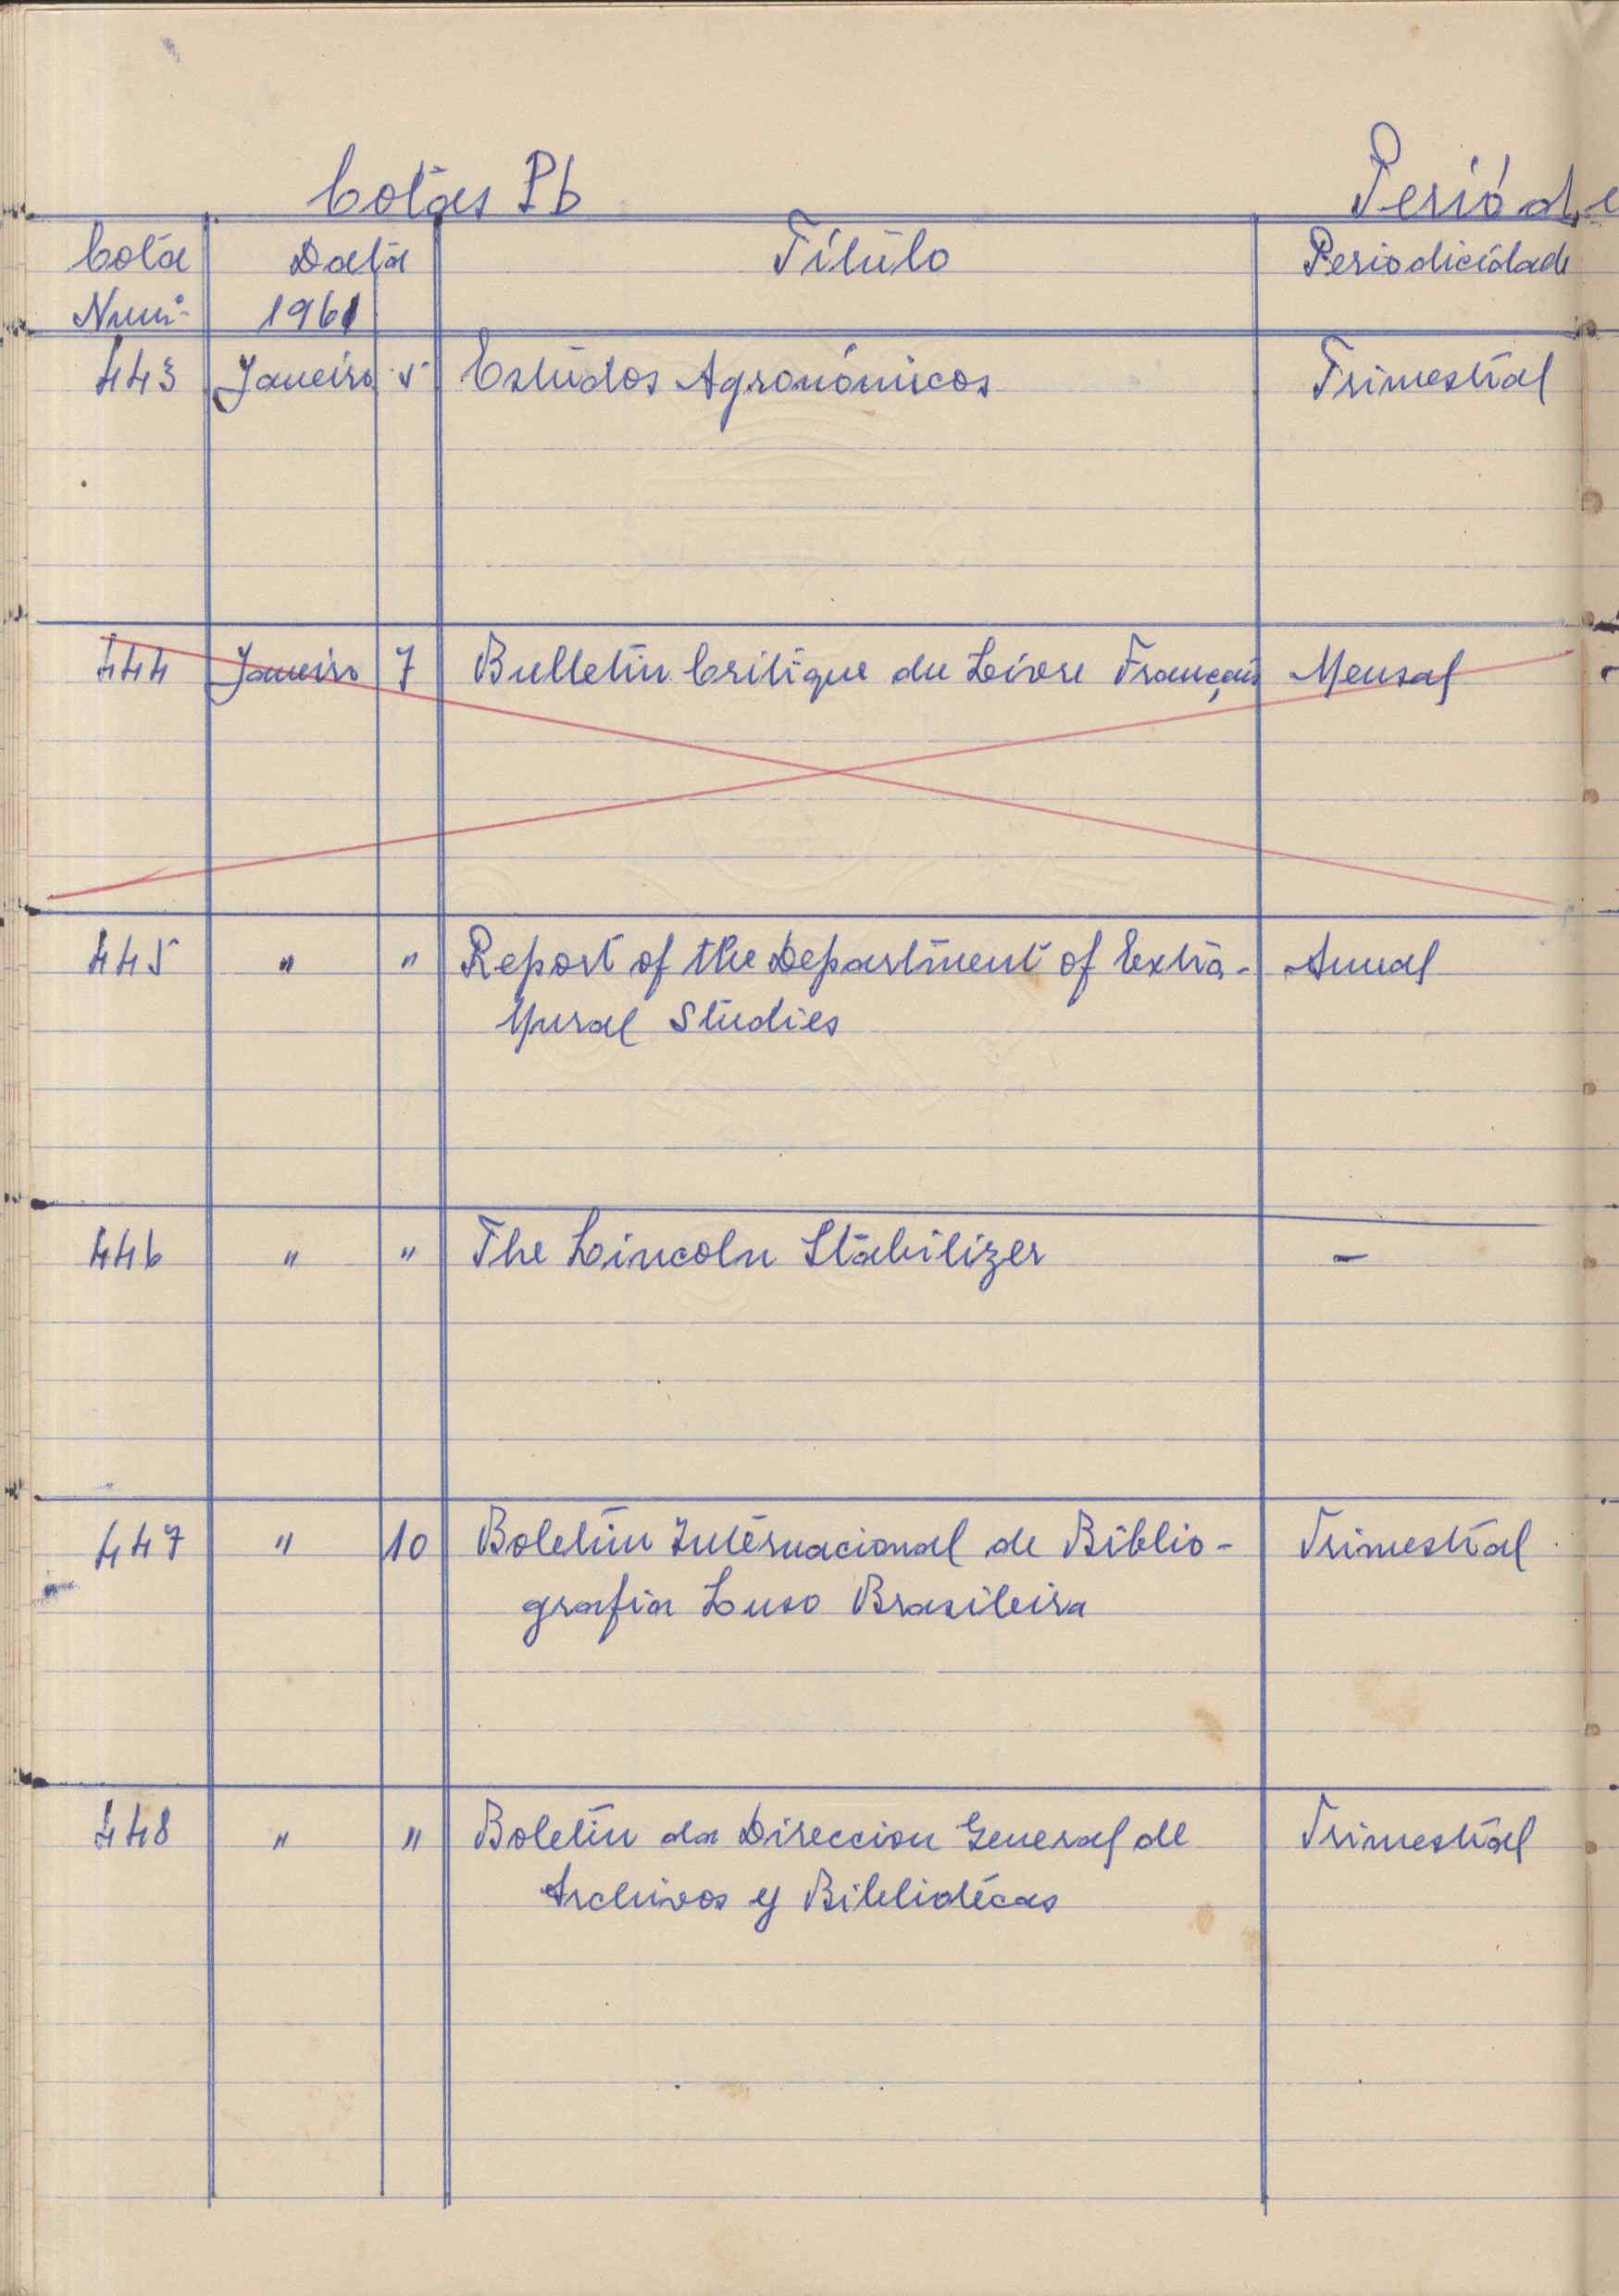 Cotas Pb Perió
Cota Data Título Periodicidade
Num.º 1961
443 Janeiro 5 Estudos Agronómicos Trimestral
444 Janeiro 7 Bulletin Critique du Livre Français Mensal
445 " " Report of the Department of Extra- Anual
Mural Studies
446 " " The Lincoln Stabilizer -
447 " 10 Boletim Internacional de Biblio- Trimestral
grafia Luso Brasileira
448 " " Boletin da Direccion General de Trimestral
Archivos y Bibliotécas